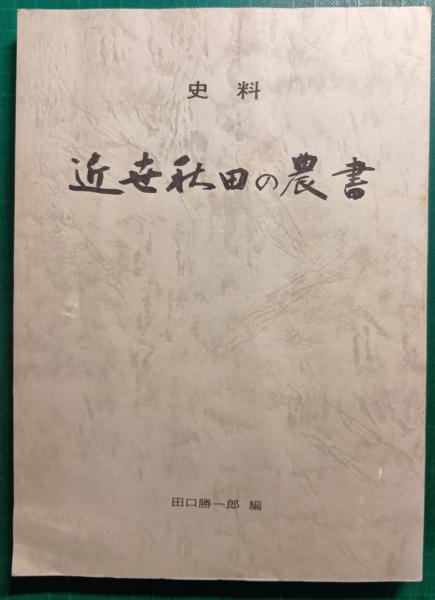 史料
近世秋田の農書
田口勝一郎 編